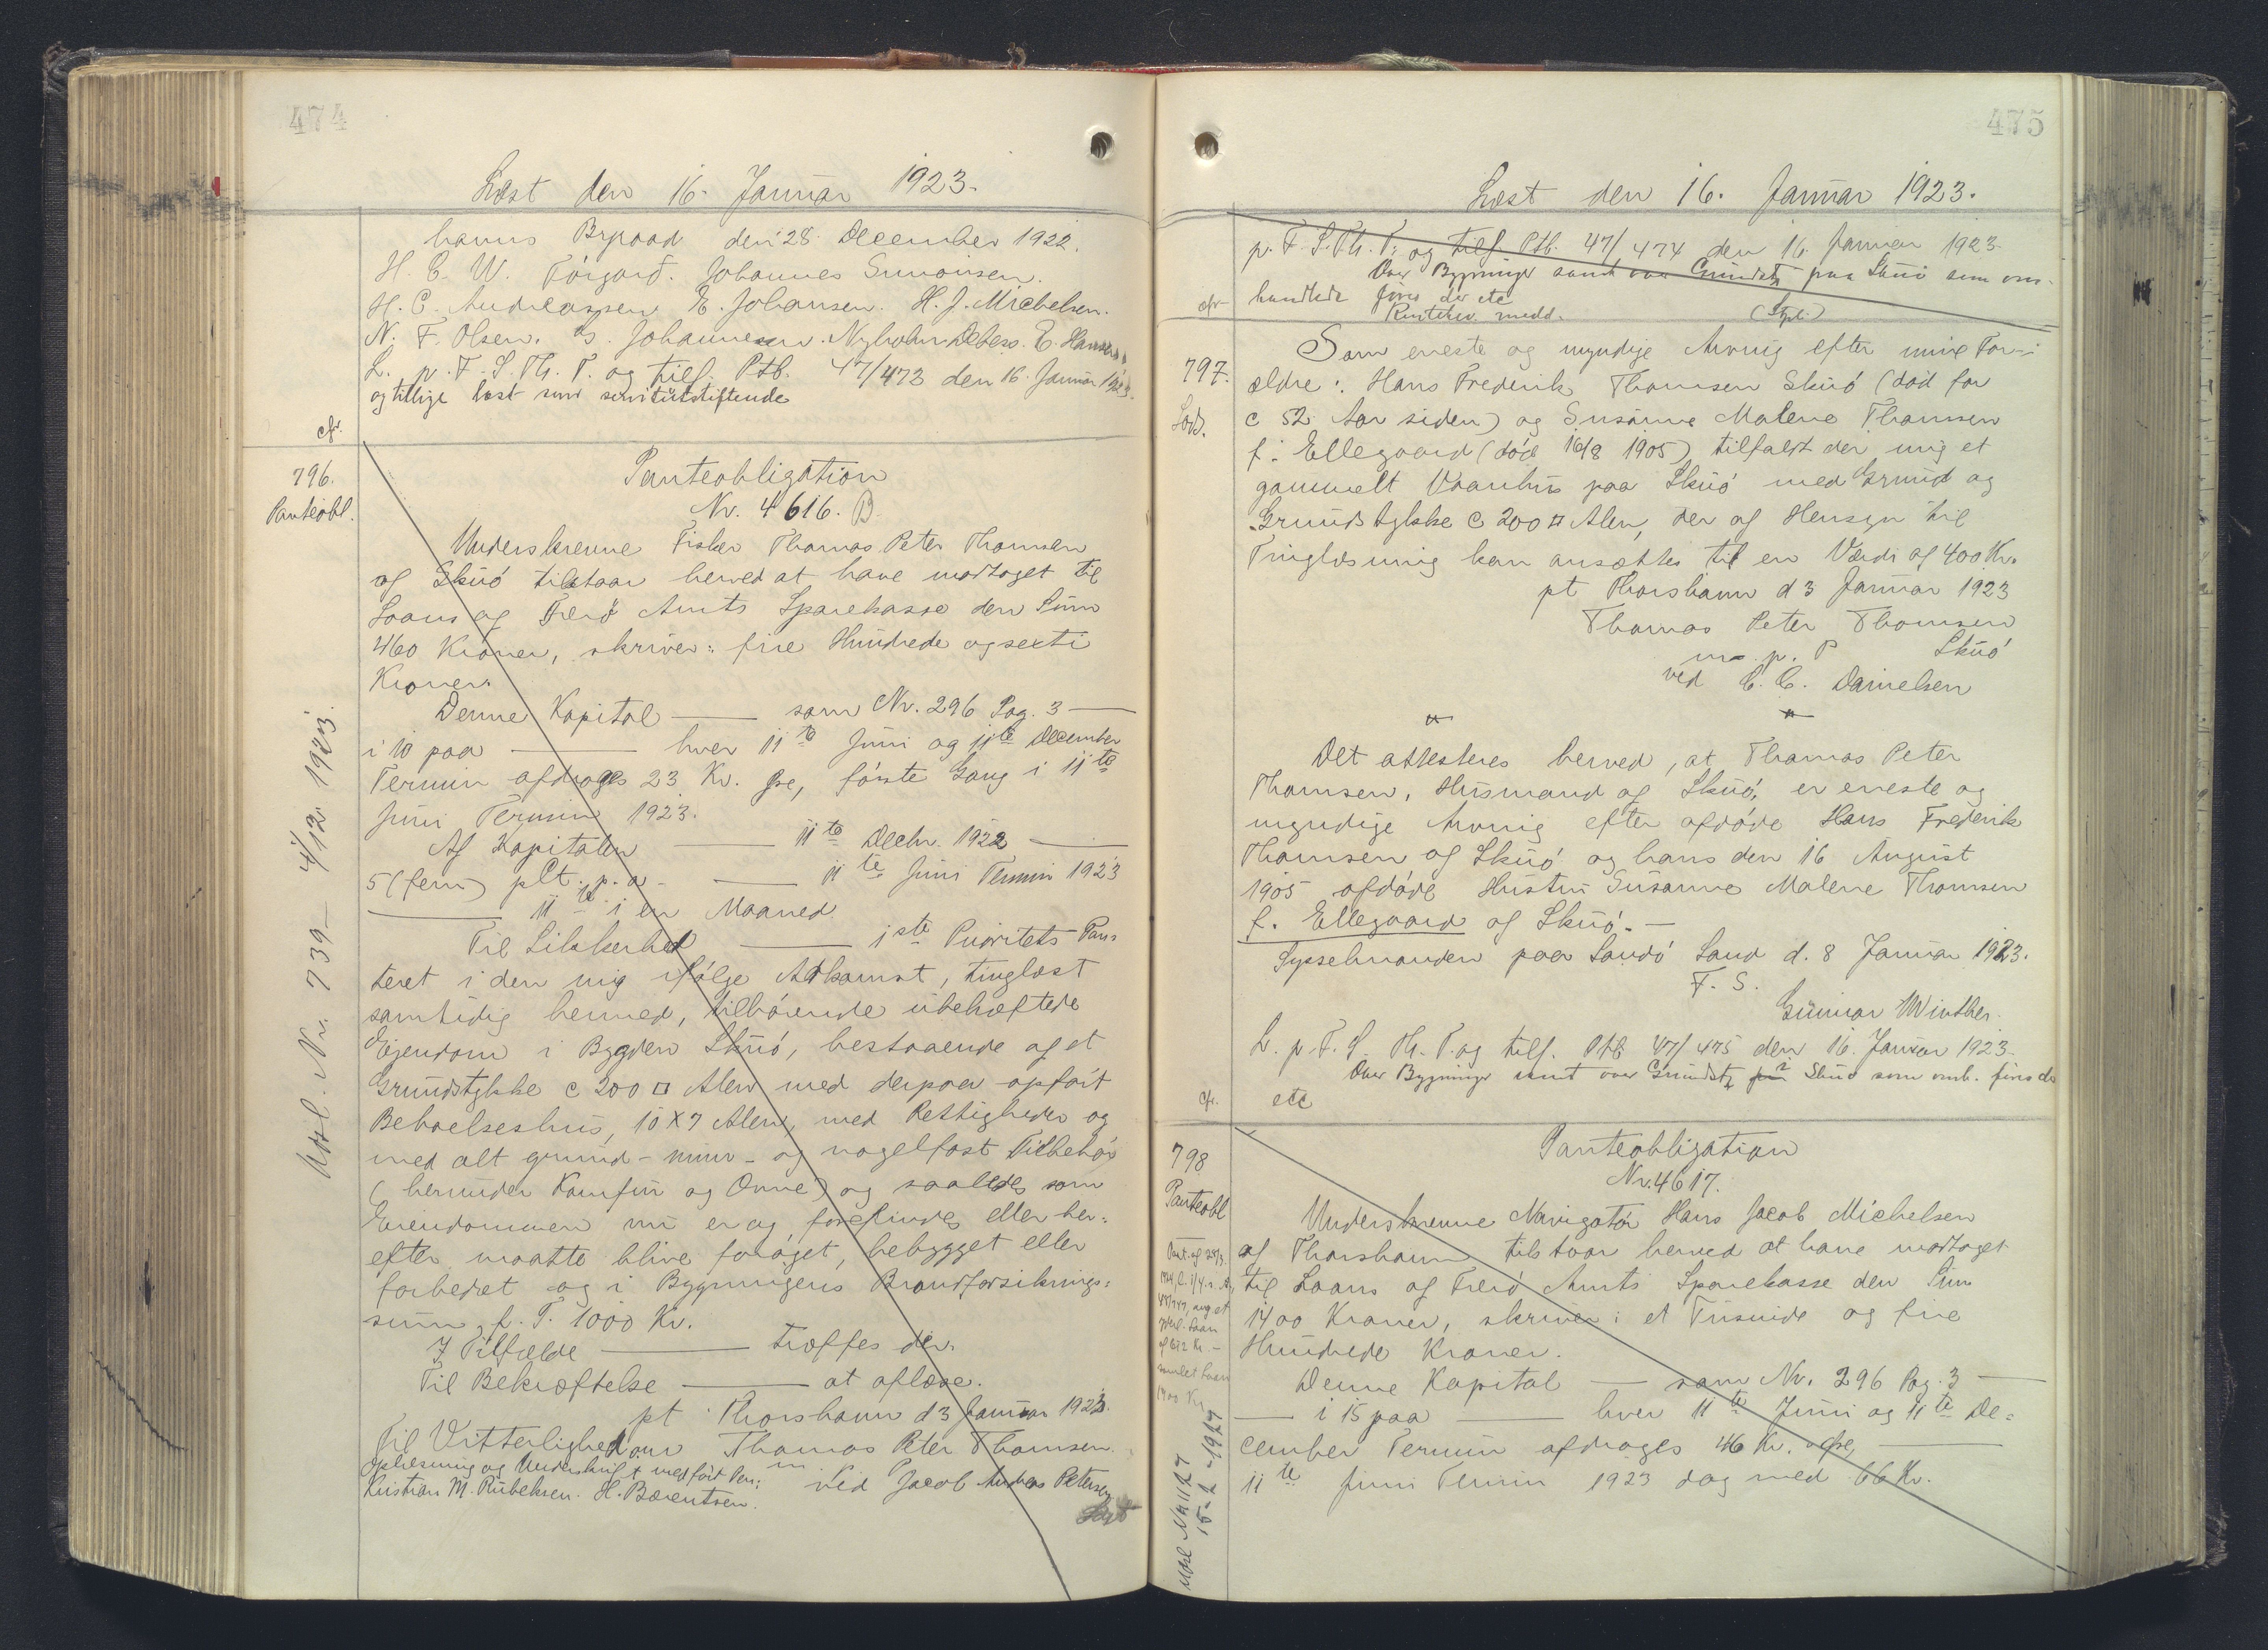 474
Læst den 16. Januar 1923.
havns Byraad den 28. December 1922.
H. C. W. Tórgarð. Johannes Simonsen.
H. C. Andreassen E. Johansen. H. J. Michelsen.
N. F. Olsen. Johannesen. Nyholm Debess. E. Hansen
L. p. F. S. Th. T. og tilf. Ptb. 47/473 den 16. Januar 1923.
og tillige læst som servitutstiftende
cfr.
796.
Panteobl.
Panteobligation
Nr. 4616. B.
Underskrevne Fisker Thomas Peter Thomsen
af Skuó tilstaar herved at have modtaget til
Laans af Færó Amts Sparekasse den Sum
460 Kroner, skriver: fire Hundrede og sexti
Kroner.
Denne Kapital — som Nr. 296 Pag. 3 —
i 10 paa — hver 11te Juni og 11te December
Termin afdrages 23 Kr. Øre, fórste Gang i 11te
Juni Termin 1923.
Af Kapitalen — 11te Decbr. 1922 —
5 (fem) pCt. p. a. — 11te Juni Termin 1923
— 11te i en Maaned
Til Sikkerhed — 1ste Prioritets Pan-
teret i den mig ifólge Adkomst, tinglæst
samtidig hermed, tilhórende ubehæftede
Ejendom i Bygden Skuó, bestaaende af et
Grundstykke c 200 □ Alen med derpaa opfórt
Beboelseshus, 10 x 7 Alen, med Rettigheder og
med alt grund- mur- og nagelfast Tilbehór
(herunder Komfur og Ovne) og saaledes som
Ejendommen nu er og forefindes eller her-
efter maatte blive foróget, bebygget eller
forbedret og i Bygningens Brandforsikrings-
sum p. T. 1000 Kr.
I Tilfælde — træffes der.
Til Bekræftelse — at aflæse.
pt Thorshavn d 3 Januar 1923.
Til Vitterlighed om Thomas Peter Thomsen.
Oplæsning og Underskrift med fórt Pen: m
Kristian M. Rubeksen. H. Bærentsen. ved Jacob Andreas Petersen
Udsl. Nr. 739 — 4/12 1923.
475
Læst den 16. Januar 1923.
p. F. S. Th. T. og tilf. Ptb. 47/474 den 16. Januar 1923.
Over Bygninger samt over Grundst. paa Skuó som om-
handlede fires der etc
cfr
797.
Som eneste og myndige Arving efter mine For-
ældre: Hans Frederik Thomsen Skuó (dód for
c 52 Aar siden) og Susanne Malene Thomsen
f. Ellegaard (dód 16/8 1905) tilfaldt der mig et
gammelt Vaanhus paa Skuó med Grund og
Grundstykke c 200 □ Alen, der af Hensyn til
Tinglæsning kan ansættes til en Værdi af 400 Kr.
pt Thorshavn d 3 Januar 1923
Thomas Peter Thomsen
m. p. P Skuó
ved C. C. Danielsen
Det attesteres herved, at Thomas Peter
Thomsen, Husmand af Skuó, er eneste og
myndige Arving efter afdóde Hans Frederik
Thomsen af Skuó og hans den 16 August
1905 afdóde Hustru Susanne Malene Thomsen
f. Ellegaard af Skuó. —
Sysselmanden paa Sandó Sand d. 8 Januar 1923.
F. S.
Gunnar Winther.
L. p. F. S. Th. T. og tilf. Ptb. 47/475 den 16. Januar 1923.
Over Bygninger samt over Grundst. paa Skuó som omh. fires der
cfr.
etc
798
Panteobl
Panteobligation
Nr. 4617.
Underskrevne Navigatór Hans Jacob Michelsen
af Thorshavn tilstaar herved at have modtaget
til Laans af Færó Amts Sparekasse den Sum
1400 Kroner, skriver: et Tusinde og fire
Hundrede Kroner.
Denne Kapital — som Nr. 296 Pag. 3 —
— i 15 paa — hver 11te Juni og 11te De-
cember Termin afdrages 46 Kr. Øre, —
11te Juni Termin 1923 dog med 66 Kr.